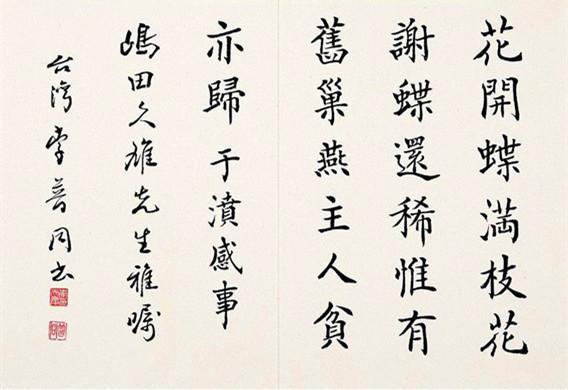 花開蝶満枝花
謝蝶還稀惟有
舊巢燕主人貧
亦歸 于濆感事
嶋田久雄先生雅嘱
台湾李普同书